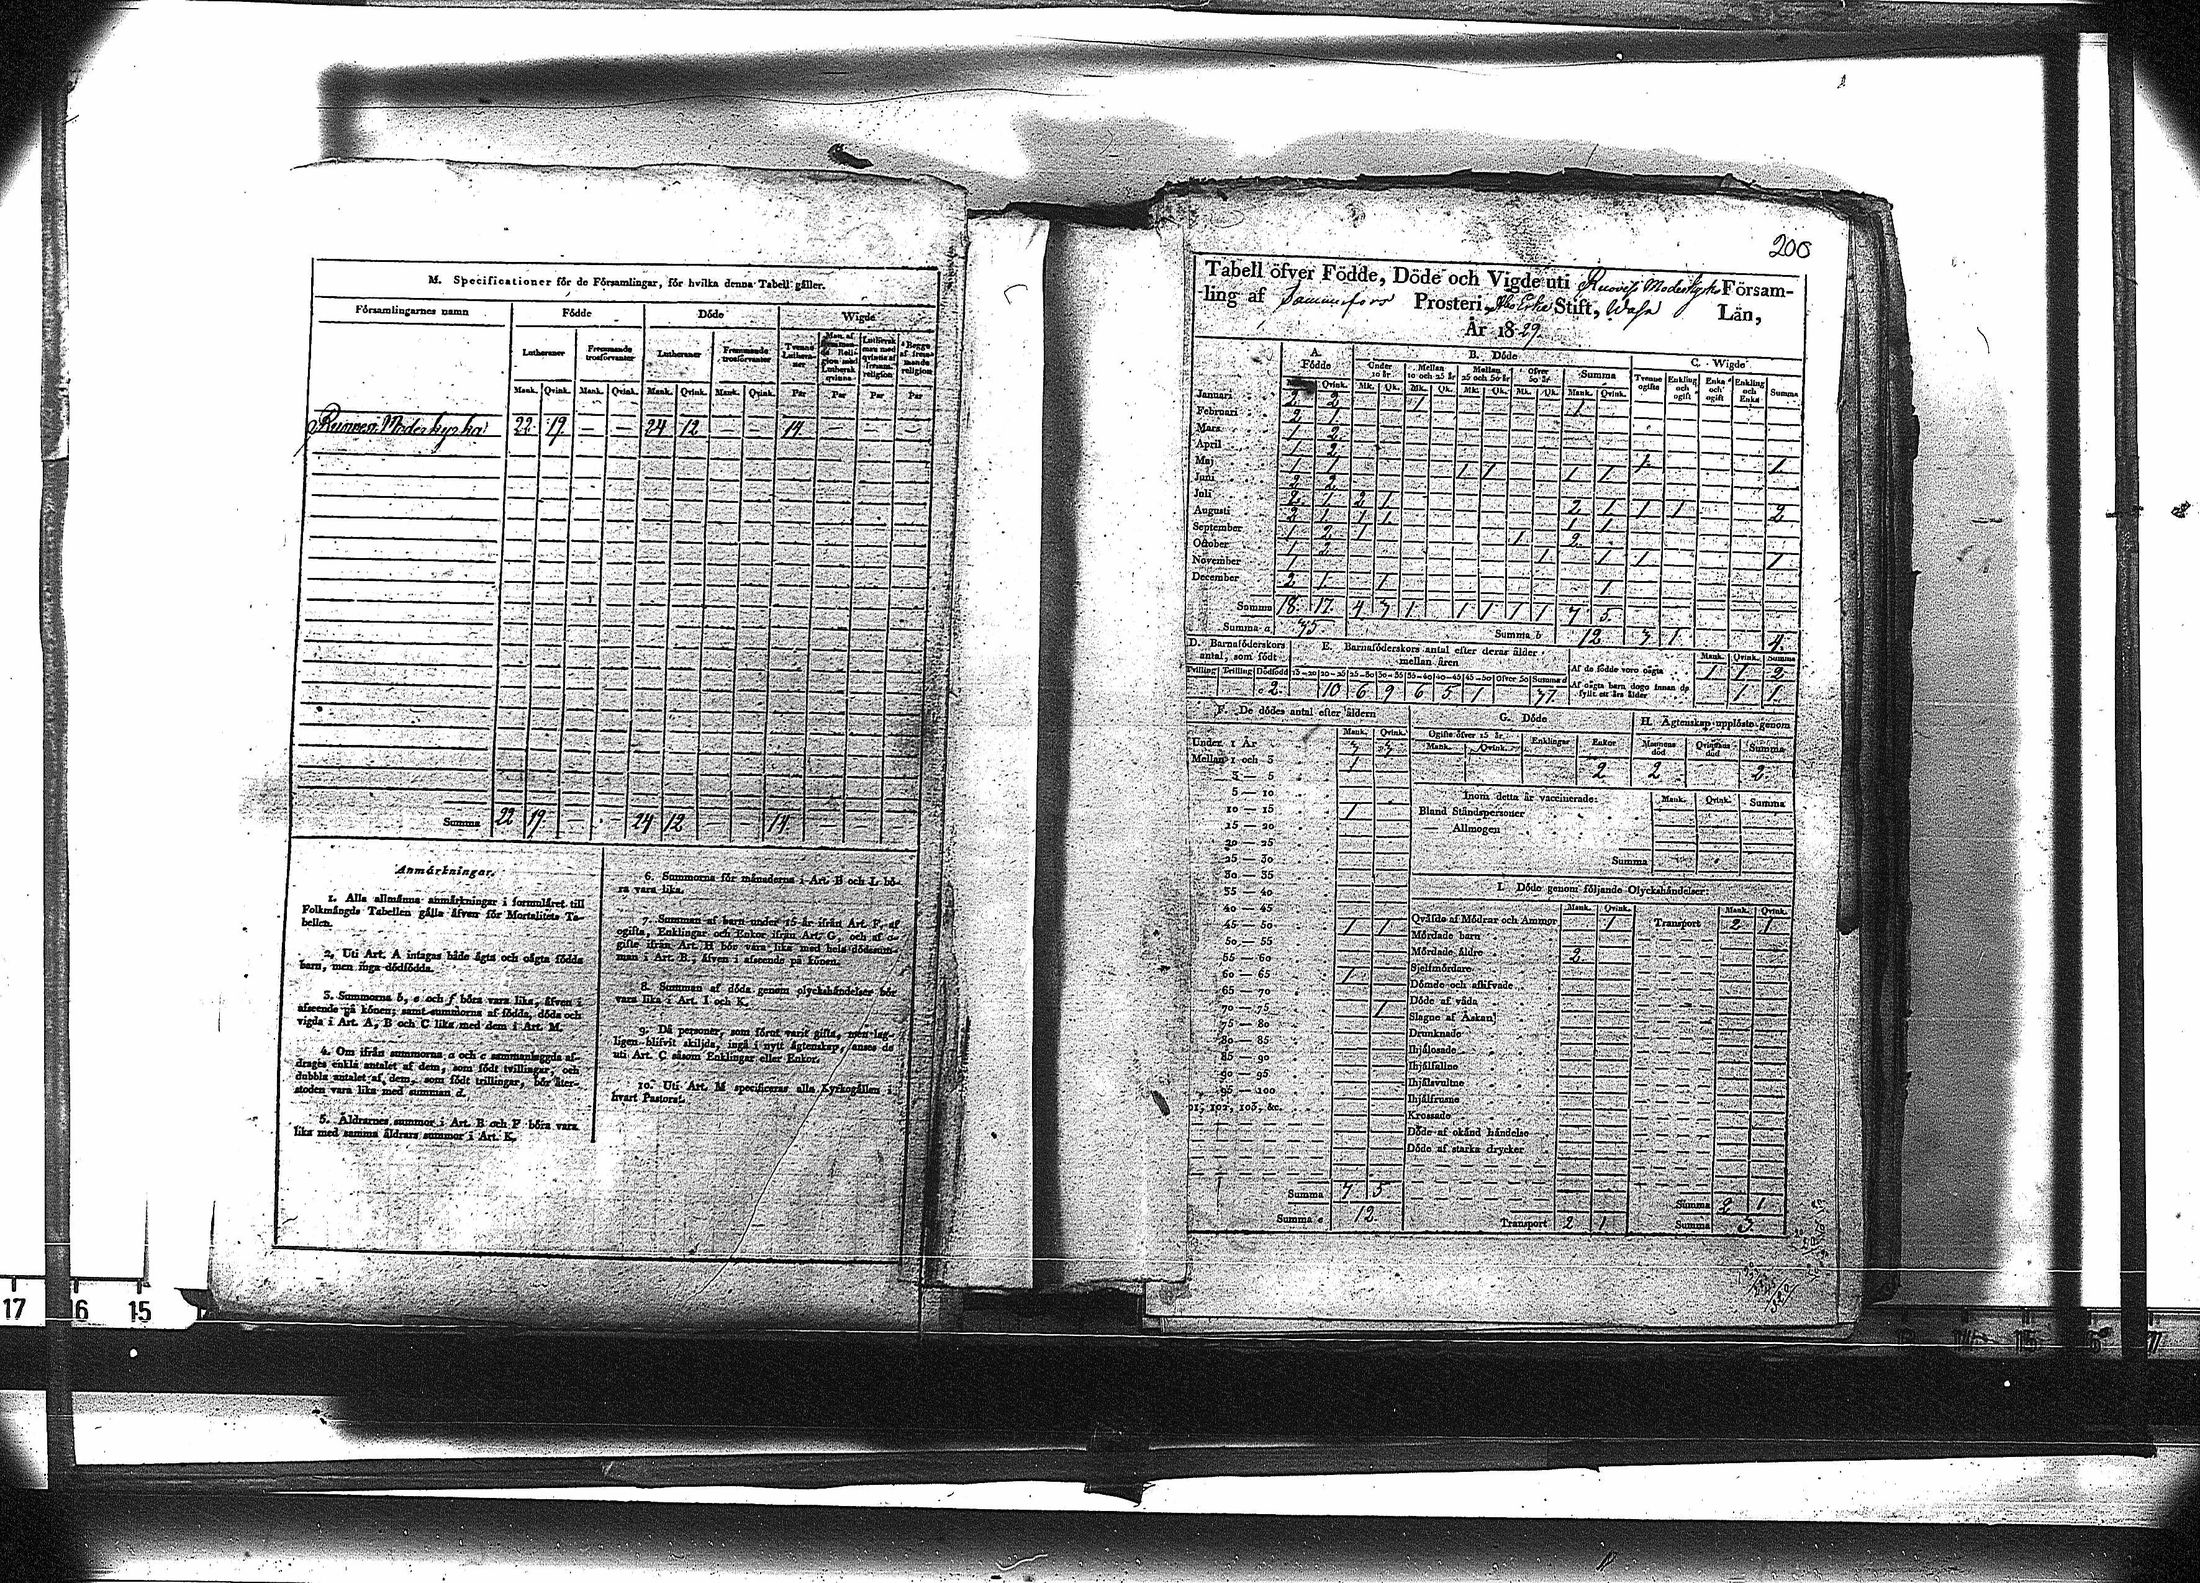 M. Specificationer för de Församlingar, för hvilka denna Tabell gäller.
Församlingarnes namn Födde Döde Wigde
Lutheraner Fremmande trosförvanter Lutheraner Fremmande trosförvanter Tvenne Lutheraner
Mank. Qvink. Mank. Qvink. Mank. Qvink. Mank. Qvink. Par Par Par Par
Ruovesi Moderkyrka 22 19 — — 24 12 — — 14 — — —
Summa 22 19 — — 24 12 — — 14 — — —
Anmärkningar.
1. Alla allmänna anmärkningar i formuläret till
Folkmängds Tabellen gälla äfven för Mortalitets Ta-
bellen.
2. Uti Art. A intagas både ägta och oägta födda
barn, men inga dödfödda.
3. Summorna b, e och f böra vara lika, äfven i
afseende på könen; samt summorna af födda, döda och
vigda i Art. A, B och C lika med dem i Art. M.
4. Om ifrån summorna a och c sammanlagda af-
drages enkla antalet af dem, som födt tvillingar, och
dubbla antalet af dem, som födt trillingar, bör åter-
stoden vara lika med summan d.
5. Åldrarnes summor i Art. B och F böra vara
lika med samma åldrars summor i Art. K.
6. Summorna för månaderna i Art. B och L bö-
ra vara lika.
7. Summan af barn under 15 år ifrån Art. F, af
ogifta, Enklingar och Enkor ifrån Art. G, och af
gifte ifrån Art. H bör vara lika med hela dödssum-
man i Art. B; äfven i afseende på könen.
8. Summan af döda genom olyckshändelser bör
vara lika i Art. I och K.
9. Då personer, som förut varit gifta, men lag-
ligen blifvit skiljda, ingå i nytt ägtenskap, anses de
uti Art. C såsom Enklingar eller Enkor.
10. Uti Art. M specificeras alla Kyrkogällen i
hvart Pastorat.
200
Tabell öfver Födde, Döde och Vigde uti Ruovesi Moderkyrko Försam-
ling af Tammefors Prosteri, Åbo Erke Stift, Wasa Län,
År 1829.
A. Födde B. Döde C. Wigde
Under 10 år Mellan 10 och 25 år Mellan 25 och 50 år Öfver 50 år Summa Tvenne ogifte Enkling och ogift Enka och ogift Enkling och Enka Summa
Qvink. Mk. Qk. Mk. Qk. Mk. Qk. Mk. Qk. Mank. Qvink.
Januari 2 2 1 1
Februari 2 1
Mars 1 2
April 1 2
Maj 1 1 1 1 1 1 1 1
Juni 2 2
Juli 2 1 2 1 2 1 1 1 2
Augusti 2 1 1 1 1 1
September 1 2 1 1 2
October 1 2
November 1 1 1 1 1
December 2 1 1 1
Summa 18 17 4 3 1 1 1 1 1 7 5
Summa a 35 Summa b 12 3 1 4
D. Barnaföderskors antal, som födt E. Barnaföderskors antal efter deras ålder mellan åren
Tvilling Trilling Dödfödd 15—20 20—25 25—30 30—35 35—40 40—45 45—50 Öfver 50 Summa d
2 10 6 9 6 5 1 37
Mank. Qvink. Summa
Af de födde voro oägta 1 1 2
Af oägta barn dogo innan de fyllt ett års ålder 1 1
F. De dödes antal efter åldern
Mank. Qvink.
Under 1 År 3 3
Mellan 1 och 3 1
3 — 5
5 — 10
10 — 15 1
15 — 20
20 — 25
25 — 30
30 — 35
35 — 40
40 — 45
45 — 50 1 1
50 — 55
55 — 60
60 — 65 1
65 — 70
70 — 75 1
75 — 80
80 — 85
85 — 90
90 — 95
95 — 100
101, 102, 103, &c.
Summa 7 5
Summa e 12
G. Döde H. Ägtenskap upplöste genom
Ogifte öfver 15 år Enklingar Enkor Mannens död Qvinnans död Summa
Mank. Qvink.
2 2 2
Inom detta år vaccinerade: Mank. Qvink. Summa
Bland Ståndspersoner
— Allmogen
Summa
I. Döde genom följande Olyckshändelser:
Mank. Qvink. Mank. Qvink.
Qväfde af Mödrar och Ammor 1 Transport 2 1
Mördade barn
Mördade äldre 2
Sjelfmördare
Dömde och aflifvade
Döde af våda
Slagne af Åskan
Drunknade
Ihjälosade
Ihjälfallne
Ihjälsvultne
Ihjälfrusne
Krossade
Döde af okänd händelse
Döde af starka drycker
Transport 2 1
Summa 2 1
Summa 3
17 16 15